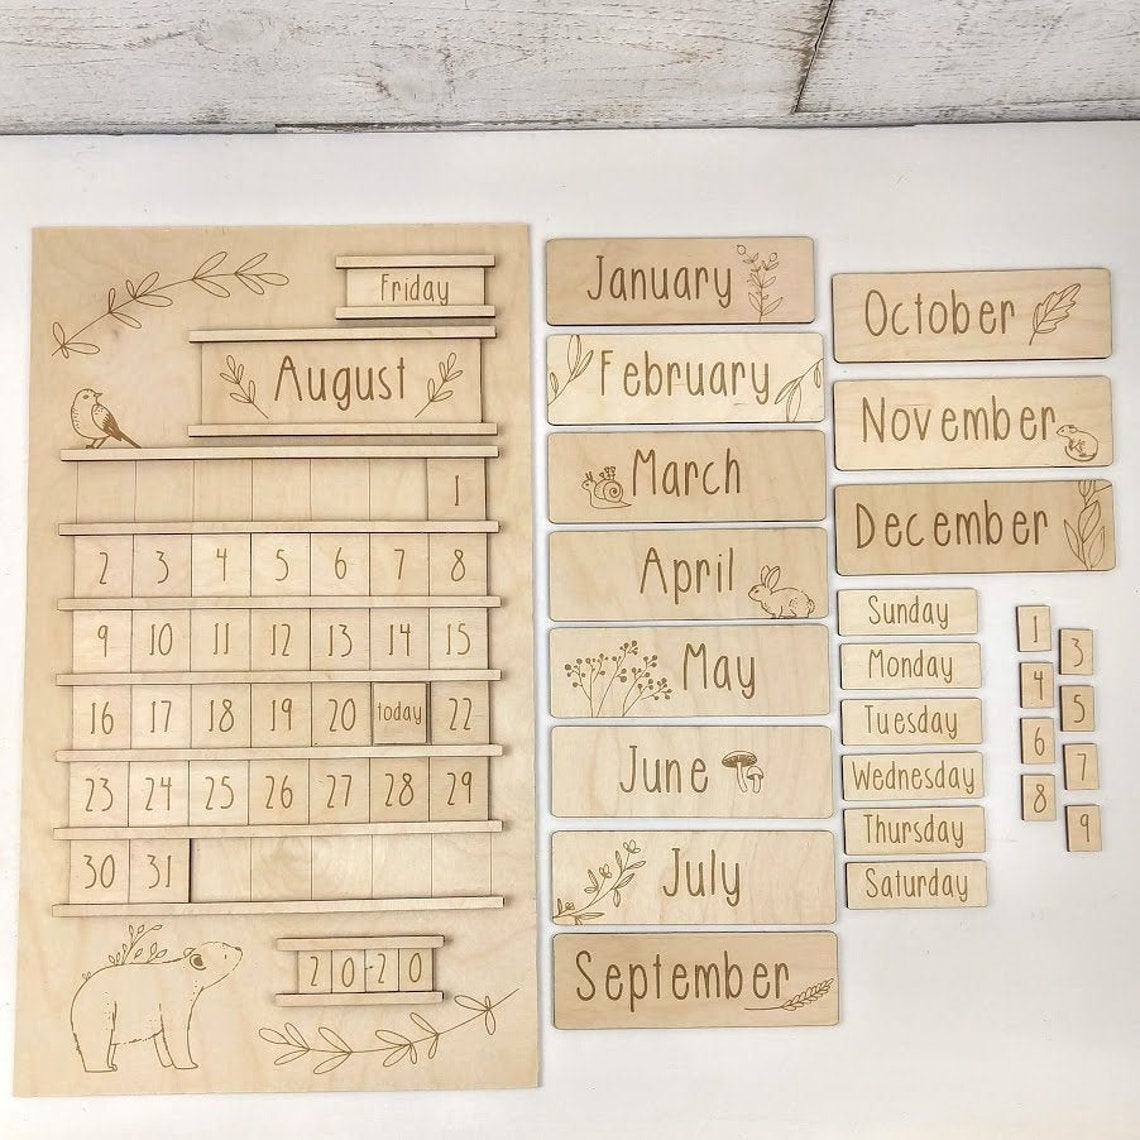 Friday
August
1
2 3 4 5 6 7 8
9 10 11 12 13 14 15
16 17 18 19 20 today 22
23 24 25 26 27 28 29
30 31
2020
January
February
March
April
May
June
July
September
October
November
December
Sunday
Monday
Tuesday
Wednesday
Thursday
Saturday
1
3
4
5
6
7
8
9